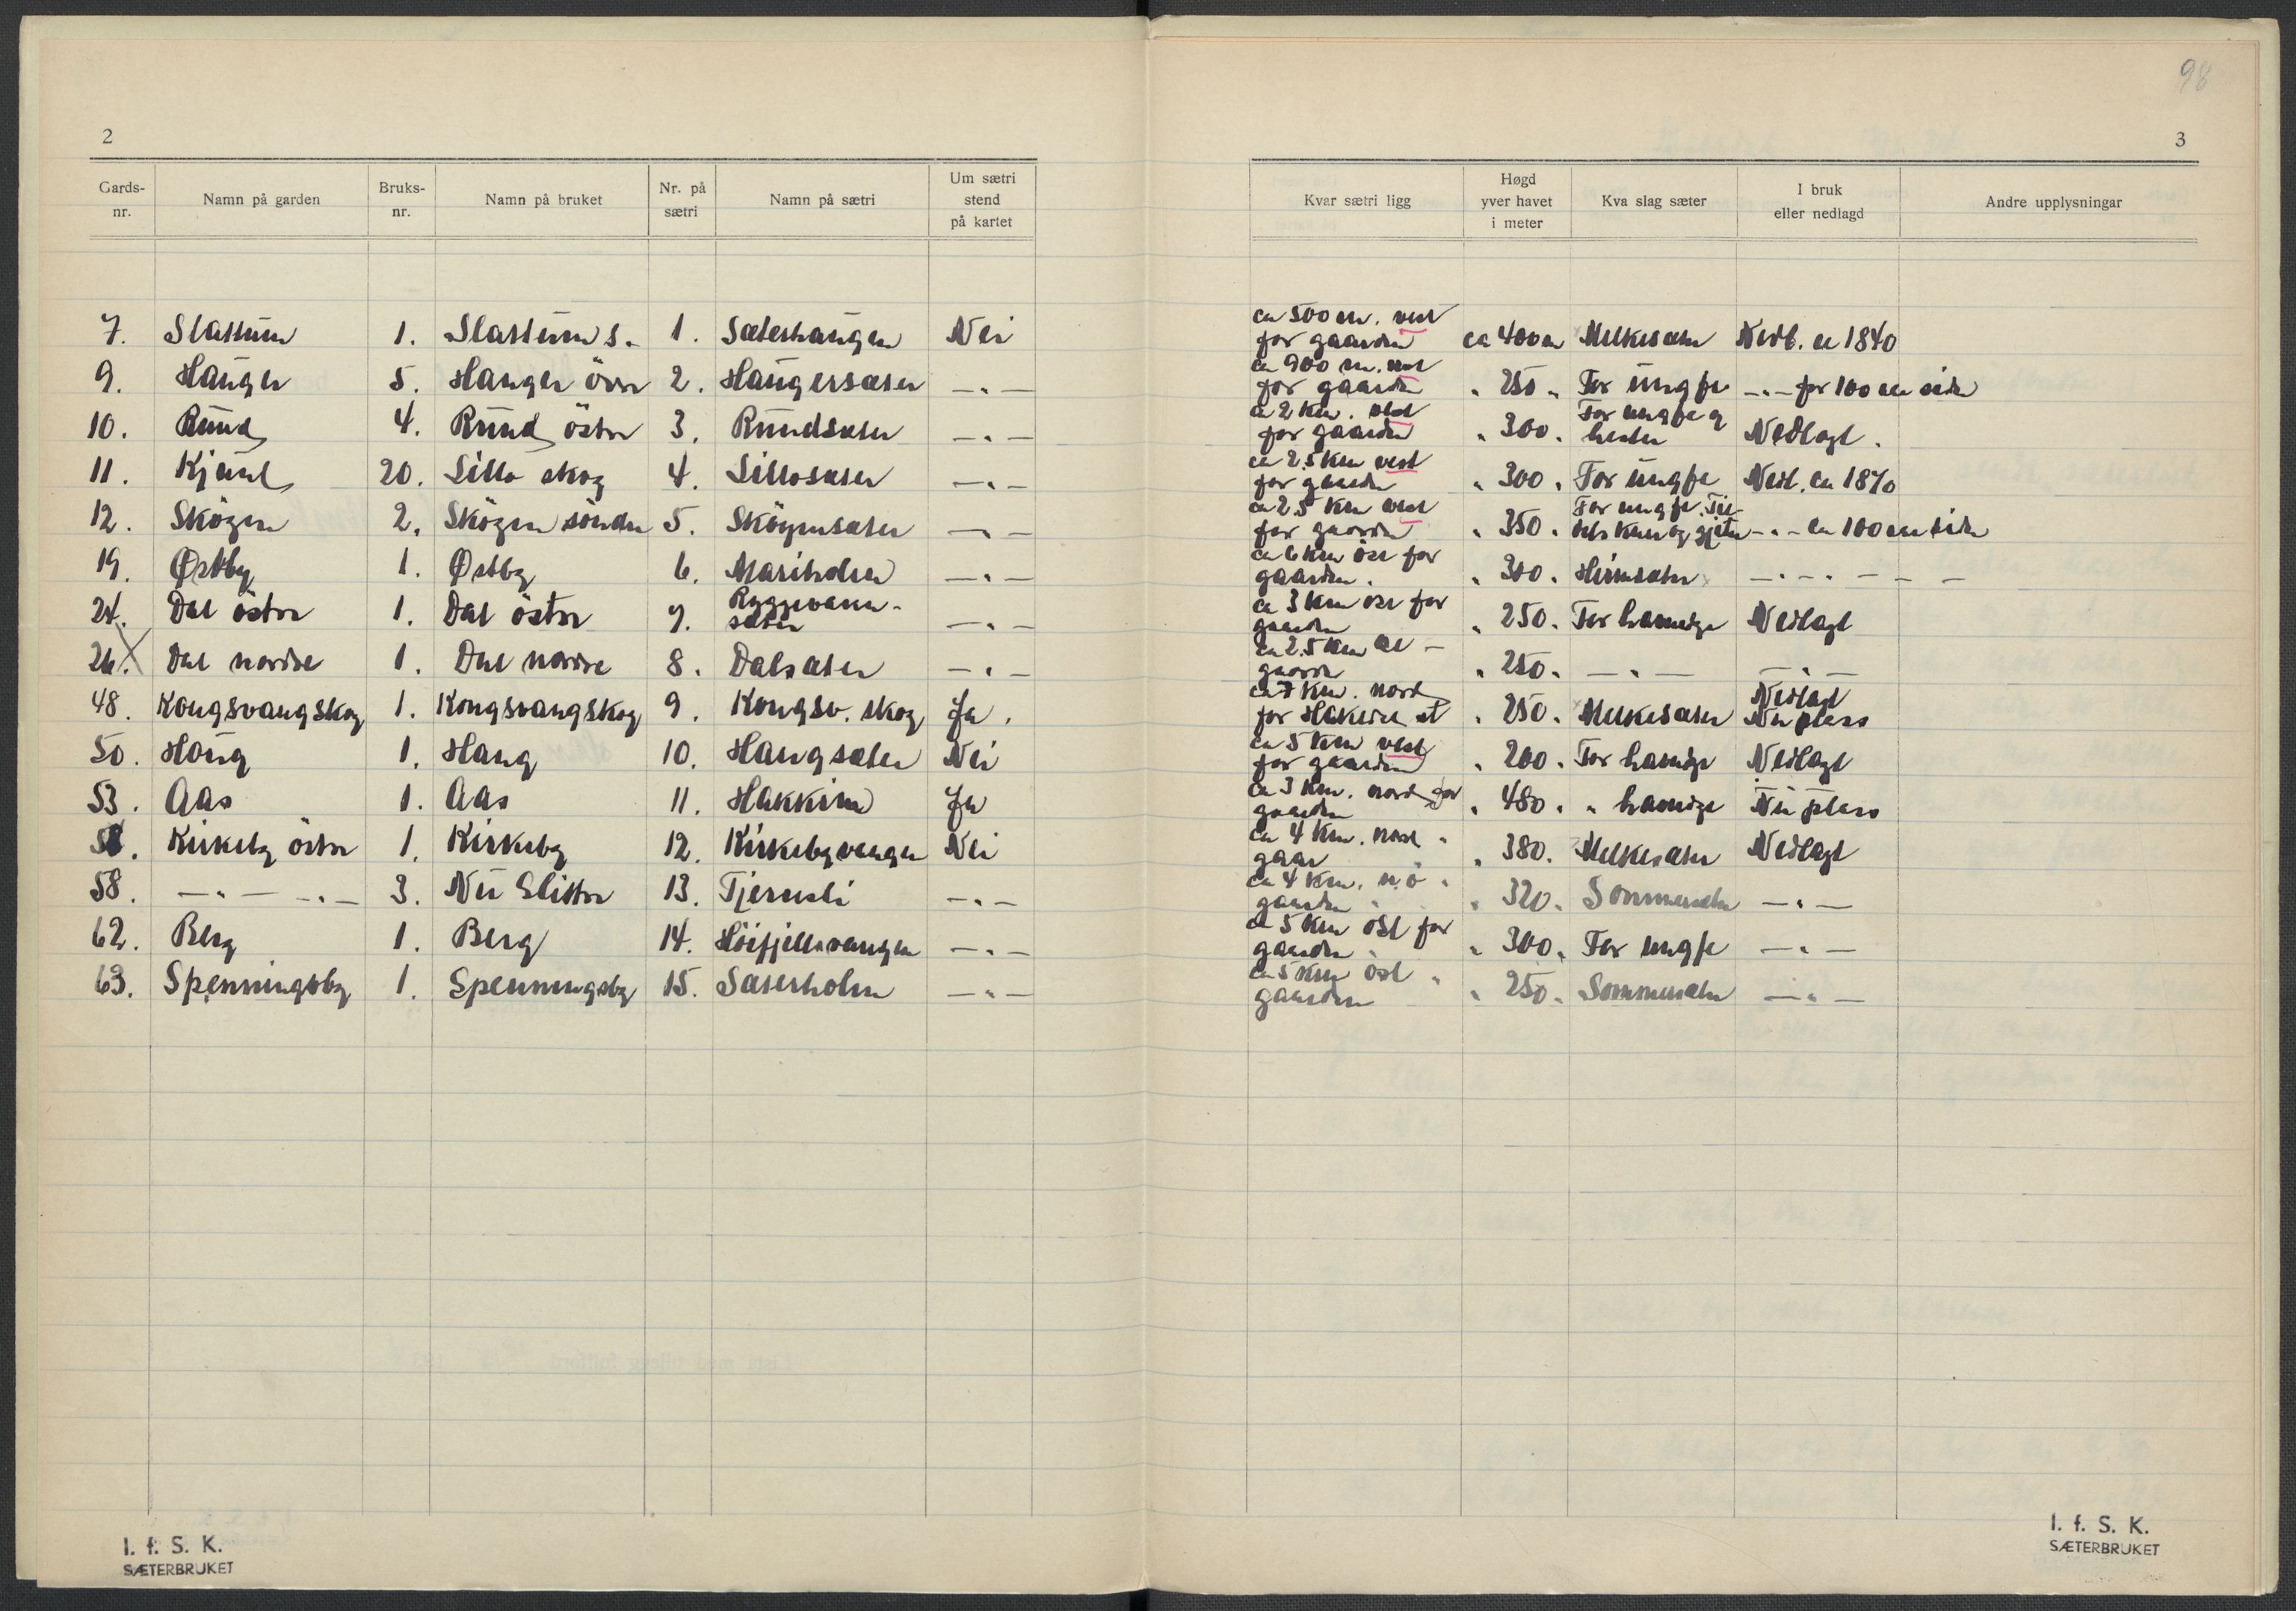 98
2
3
Gards-nr. Namn på garden Bruks-nr. Namn på bruket Nr. på sætri Namn på sætri Um sætri stend på kartet Kvar sætri ligg Høgd yver havet i meter Kva slag sæter I bruk eller nedlagd Andre upplysningar
7. Slattum 1. Slattum s. 1. Sæterhaugen Nei ca 500 m. vest for gaarden ca 400 m Melkesæter Nedl. ca 1840
9. Hauger 5. Hauger övre 2. Haugersæter —„— ca 900 m. vest for gaarden „ 250 „ For ungfe —„— for 100 aar siden
10. Ruud 4. Ruud östre 3. Ruudsæter —„— ca 2 km. vest for gaarden „ 300. For ungfe og hester Nedlagt.
11. Kjuul 20. Lillo skog 4. Lillosæter —„— ca 2,5 km vest for gaarden „ 300. For ungfe Nedl. ca 1870
12. Skögen 2. Skögen söndre 5. Skögensæter —„— ca 2,5 km vest for gaarden „ 350. For ungfe. Til- dels kuer og gjeter —„— ca 100 aar siden
19. Østby 1. Østby 6. Mariholen —„— ca 6 km öst for gaarden. „ 300. Heimsæter —„—„— — —
24. Dal östre 1. Dal östre 7. Ryggevann- sæter —„— ca 3 km öst for gaarden „ 250. For hamning Nedlagt
26. Dal nordre 1. Dal nordre 8. Dalsæter —„— ca 2,5 km öst — gaarden „ 250. —„— —„—
48. Kongsvangskog 1. Kongsvangskog 9. Kongsv. skog Ja. ca 7 km. nord for Hakedal st „ 250. Melkesæter Nedlagt Nu plass
50. Haug 1. Haug 10. Haugsæter Nei ca 5 km vest for gaarden „ 200. For hamning Nedlagt
53. Aas 1. Aas 11. Hakkim Ja ca 3 km. nord for gaarden „ 480. „ hamning Nu plass
58. Kirkeby östre 1. Kirkeby 12. Kirkebyvangen Nei ca 4 km. nord „ gaar „ 380. Melkesæter Nedlagt
58. —„— —„— 3. Nu Slittre 13. Tjernsli —„— ca 4 km. n.ö „ gaarden „ 320. Sommersæter —„—
62. Berg 1. Berg 14. Höifjellsvangen —„— ca 5 km öst for gaarden „ 300. For ungfe —„—
63. Spenningsby 1. Spenningsby 15. Sæterholm —„— ca 5 km öst „ gaarden „ 250. Sommersæter —„—
I. f. S. K.
SÆTERBRUKET
I. f. S. K.
SÆTERBRUKET